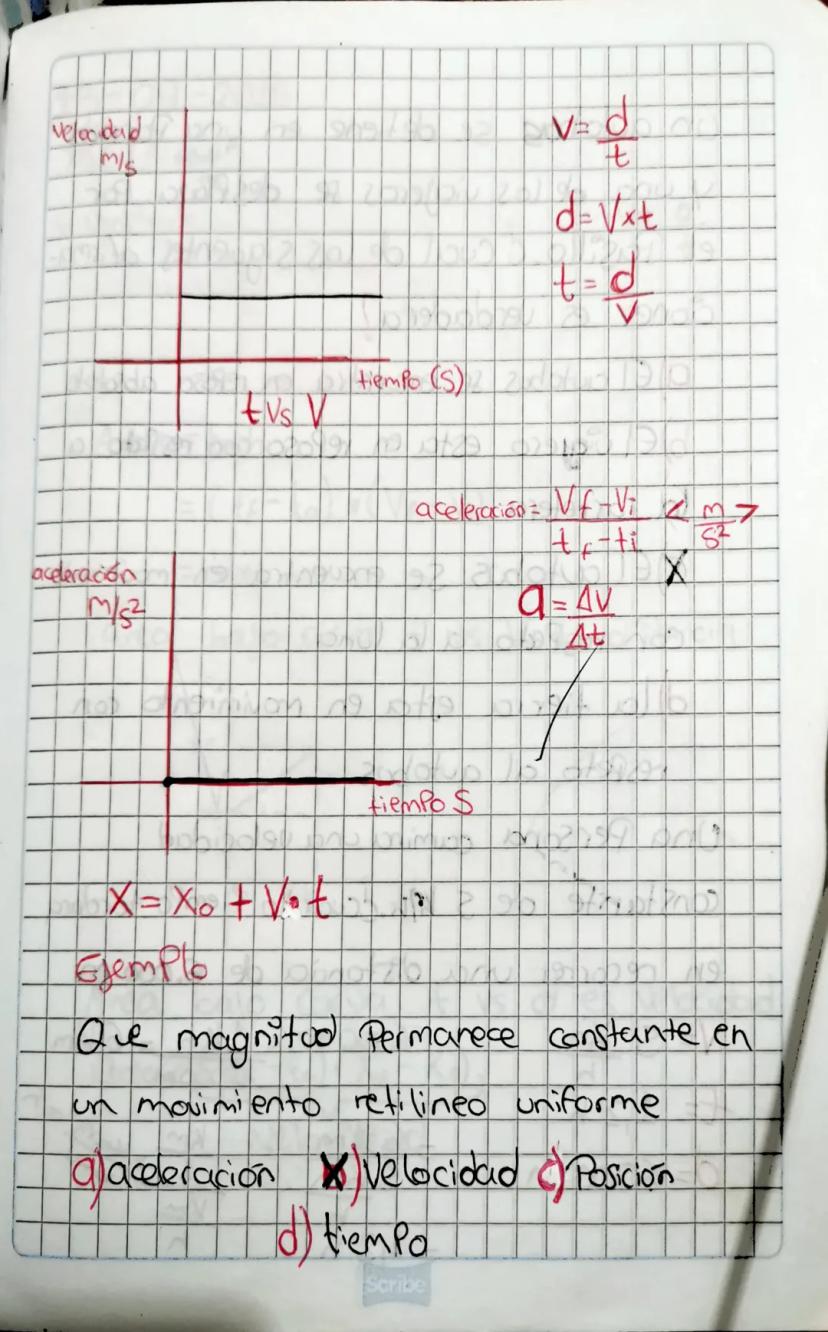 velocidad
m/s
v= d/t
d= V×t
t= d/V
tiempo (s)
t vs V
aceleración= Vf-Vi / tf-ti < m/s² >
aceleración
m/s²
a= ΔV/Δt
tiempo s
X = X₀ + V•t
Ejemplo
Que magnitud Permanece constante en
un movimiento retilineo uniforme
a) aceleración b) velocidad c) Posición
d) tiempo
Scribe